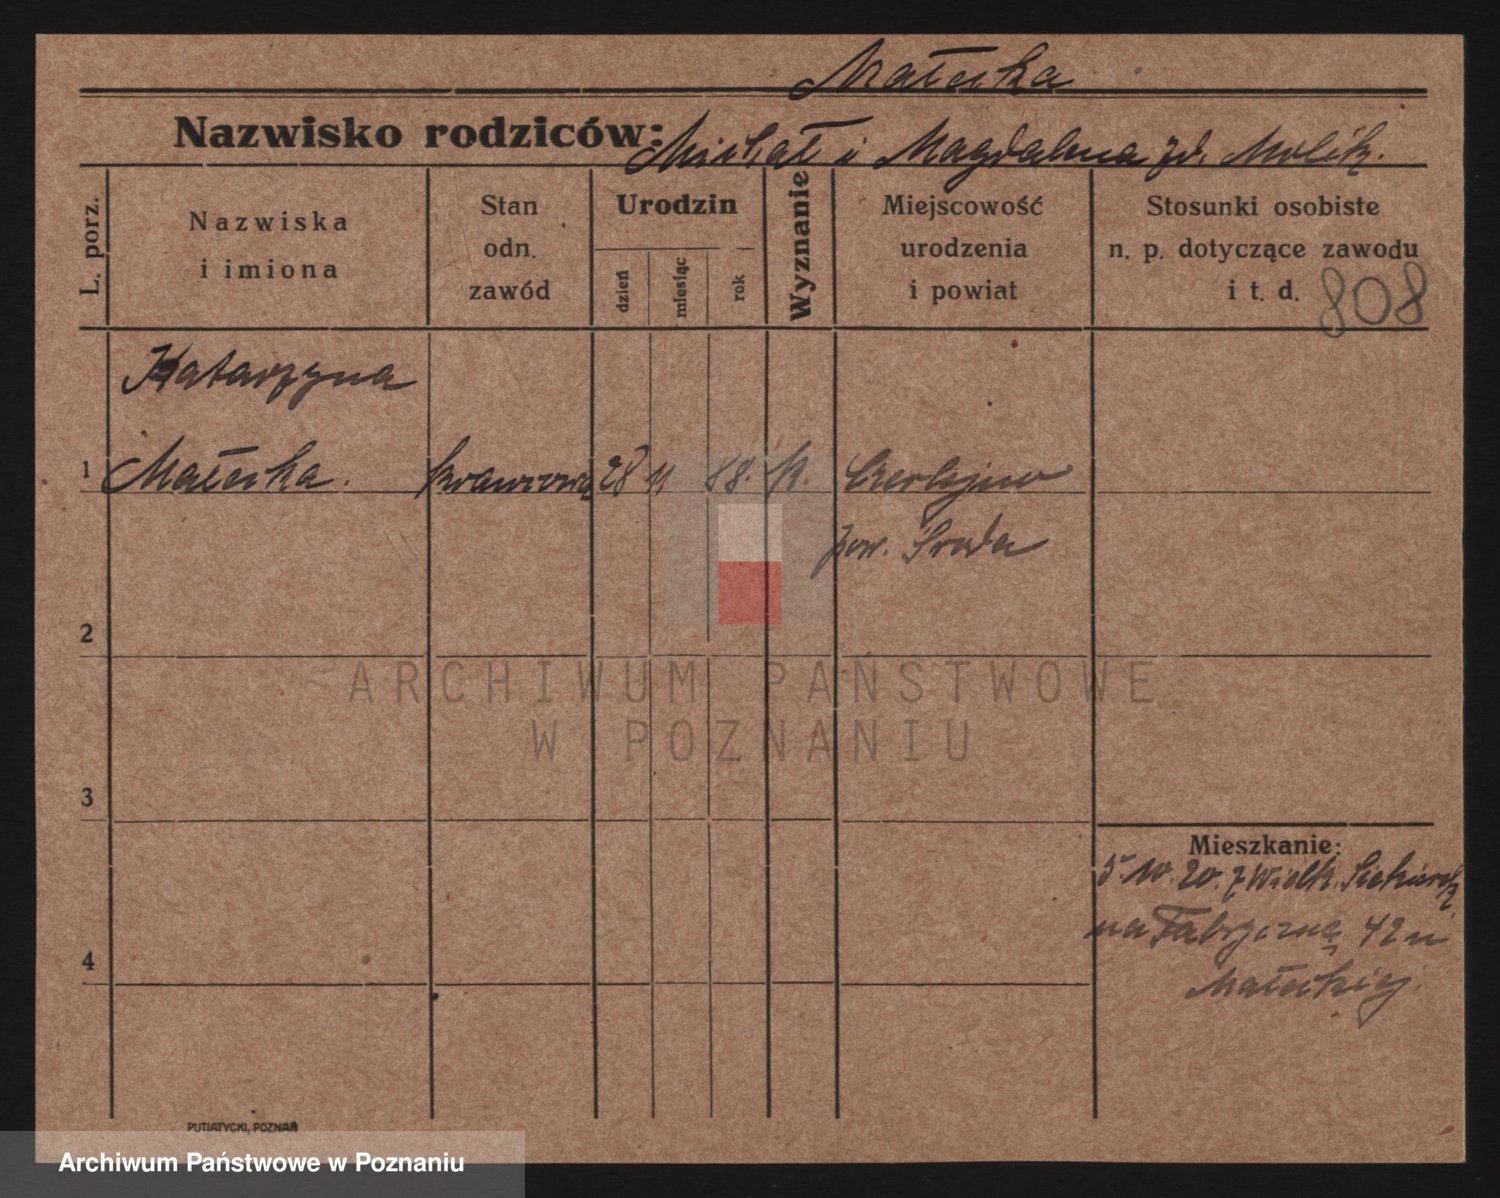 Małecka
Nazwisko rodziców: Michał i Magdalena zd. Molik.
L. porz.
Nazwiska
i imiona
Stan
odn.
zawód
Urodzin
dzień
miesiąc
rok
Wyznanie
Miejscowość
urodzenia
i powiat
Stosunki osobiste
n. p. dotyczące zawodu
i t. d. 808
Katarzyna
1 Małecka. krawcowa 28 11 88. k. Czerlejno
pow. Środa
2
ARCHIWUM PAŃSTWOWE
W POZNANIU
3
Mieszkanie:
5.10.20. z Wielk. Siekierek
na Fabryczną 42 u
4
Małeckiej.
PUTIATYCKI, POZNAŃ
Archiwum Państwowe w Poznaniu